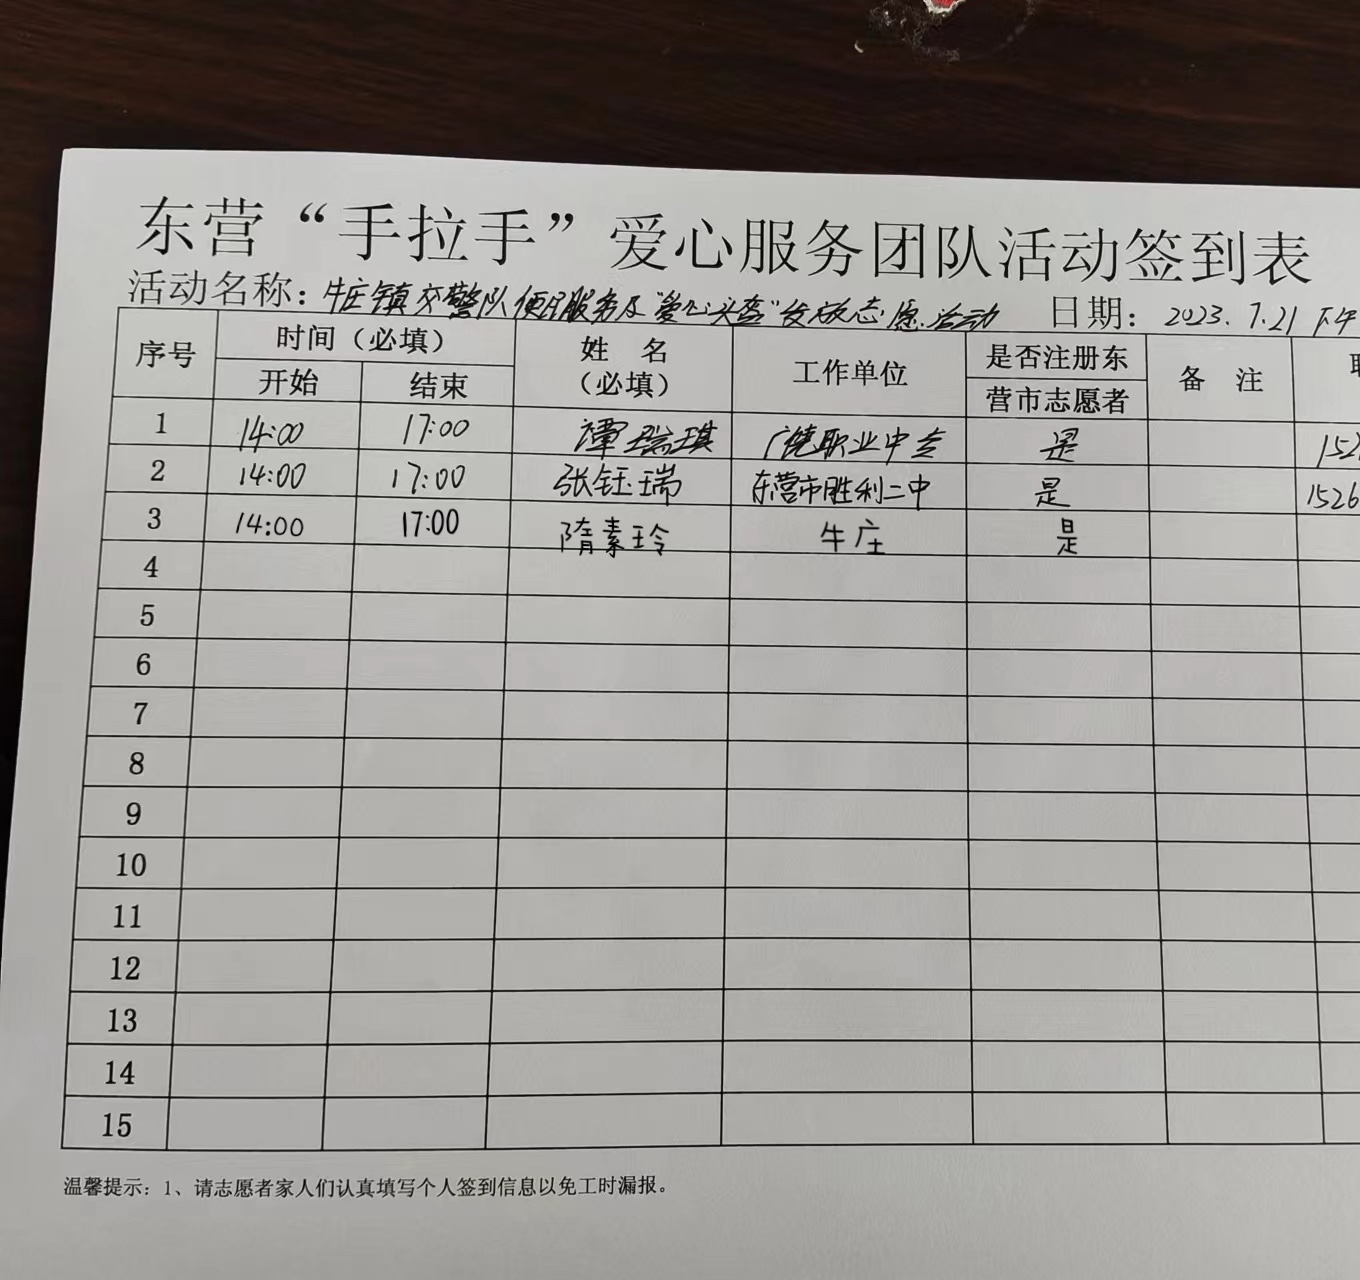 东营“手拉手”爱心服务团队活动签到表
活动名称：牛庄镇交警队便民服务及“爱心头盔”发放志愿活动 日期：2023.7.21 下午
序号 时间（必填） 姓 名（必填） 工作单位 是否注册东营市志愿者 备 注
开始 结束
1 14:00 17:00 谭瑞琪 广饶职业中专 是 152
2 14:00 17:00 张钰瑞 东营市胜利二中 是 1526
3 14:00 17:00 隋素玲 牛庄 是
4
5
6
7
8
9
10
11
12
13
14
15
温馨提示：1、请志愿者家人们认真填写个人签到信息以免工时漏报。